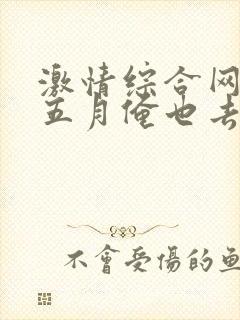 激情综合网
五月俺也去
不會受傷的魚